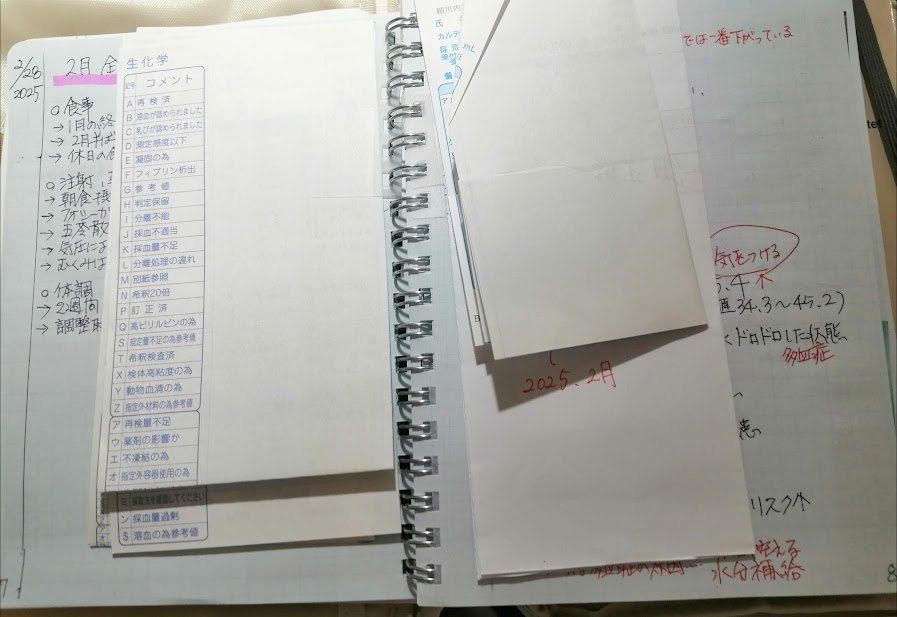 2/28
2025
2月
○食事
→1月の終
→2月半ば
→休日の食
○注射、
→朝食
→
→五苓散
→気圧によ
→むくみは
○体調
→2週間
→調整
7
生化学
記号 コメント
A 再検済
B 溶血が認められました
C 乳びが認められました
D 測定感度以下
E 凝固の為
F フィブリン析出
G 参考値
H 判定保留
I 分離不能
J 採血不適当
K 採血量不足
L 分離処理の遅れ
M 別紙参照
N 希釈20倍
P 訂正済
Q 高ビリルビンの為
S 規定量不足の為参考値
T 希釈検査済
X 検体高粘度の為
Y 動物血清の為
Z 指定外材料の為参考値
ア 再検量不足
ウ 薬剤の影響か
エ 不凍結の為
オ 指定外容器使用の為
ミ してください
ン 採血量過剰
$ 溶血の為参考値
氏
カルテ
mL
備
ア
B
2025.2月
では一番下がっている
気をつける
5.4
34.3〜45.2)
ドロドロした状態
多血症
患
リスク
控える
水分補給
8